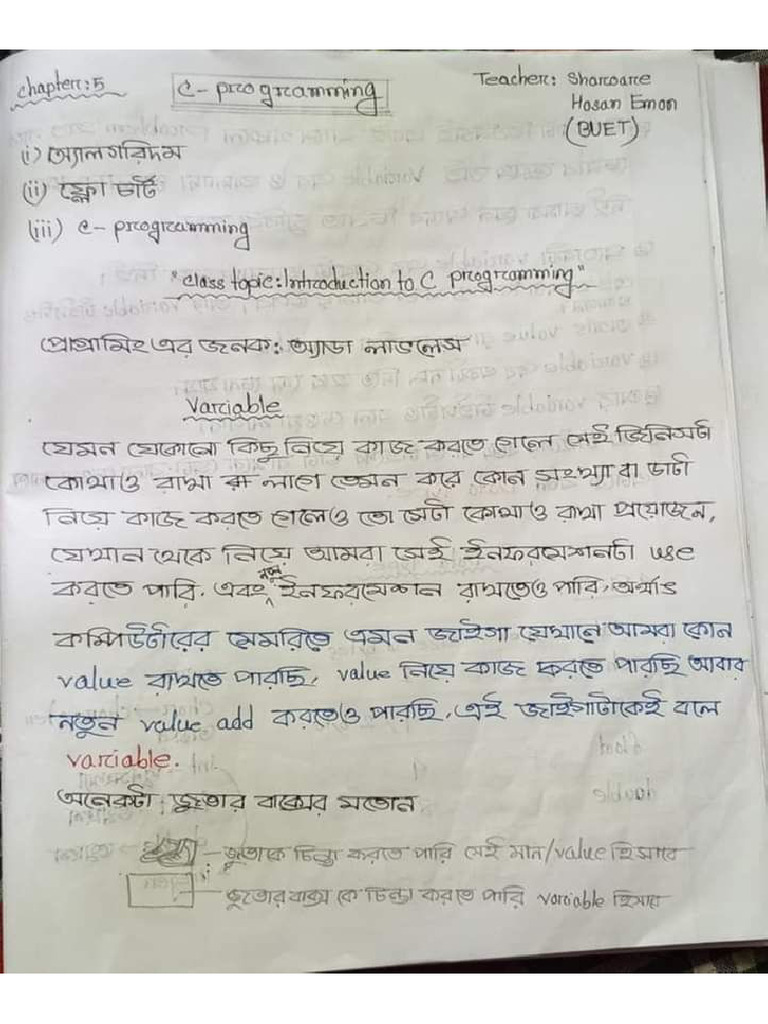 Chapter: 5
C-programming
Teacher: Sharoare
Hasan Emon
(BUET)
(i) অ্যালগরিদম
(ii) ফ্লো চার্ট
(iii) C-programming
"Class topic: Introduction to C programming"
প্রোগ্রামিং এর জনক: অ্যাডা লাভলেস
Variable
যেমন যেকোনো কিছু নিয়ে কাজ করতে গেলে সেই জিনিসটা
কোথাও রাখা লাগে তেমন করে কোন সংখ্যা বা ডাটা
নিয়ে কাজ করতে গেলেও তো সেটা কোথাও রাখা প্রয়োজন,
যেখান থেকে নিয়ে আমরা সেই ইনফরমেশনটা use
করতে পারি. এবং নতুন ইনফরমেশন রাখতেও পারি, অর্থাৎ
কম্পিউটারের মেমরিতে এমন জাইগা যেখানে আমরা কোন
value রাখতে পারছি, value নিয়ে কাজ করতে পারছি আবার
নতুন value add করতেও পারছি, এই জাইগাটাকেই বলে
variable.
অনেকটা জুতার বাক্সের মতোন
জুতাকে চিন্তা করতে পারি সেই মান/value হিসাবে
জুতার বাক্স কে চিন্তা করতে পারি variable হিসাবে